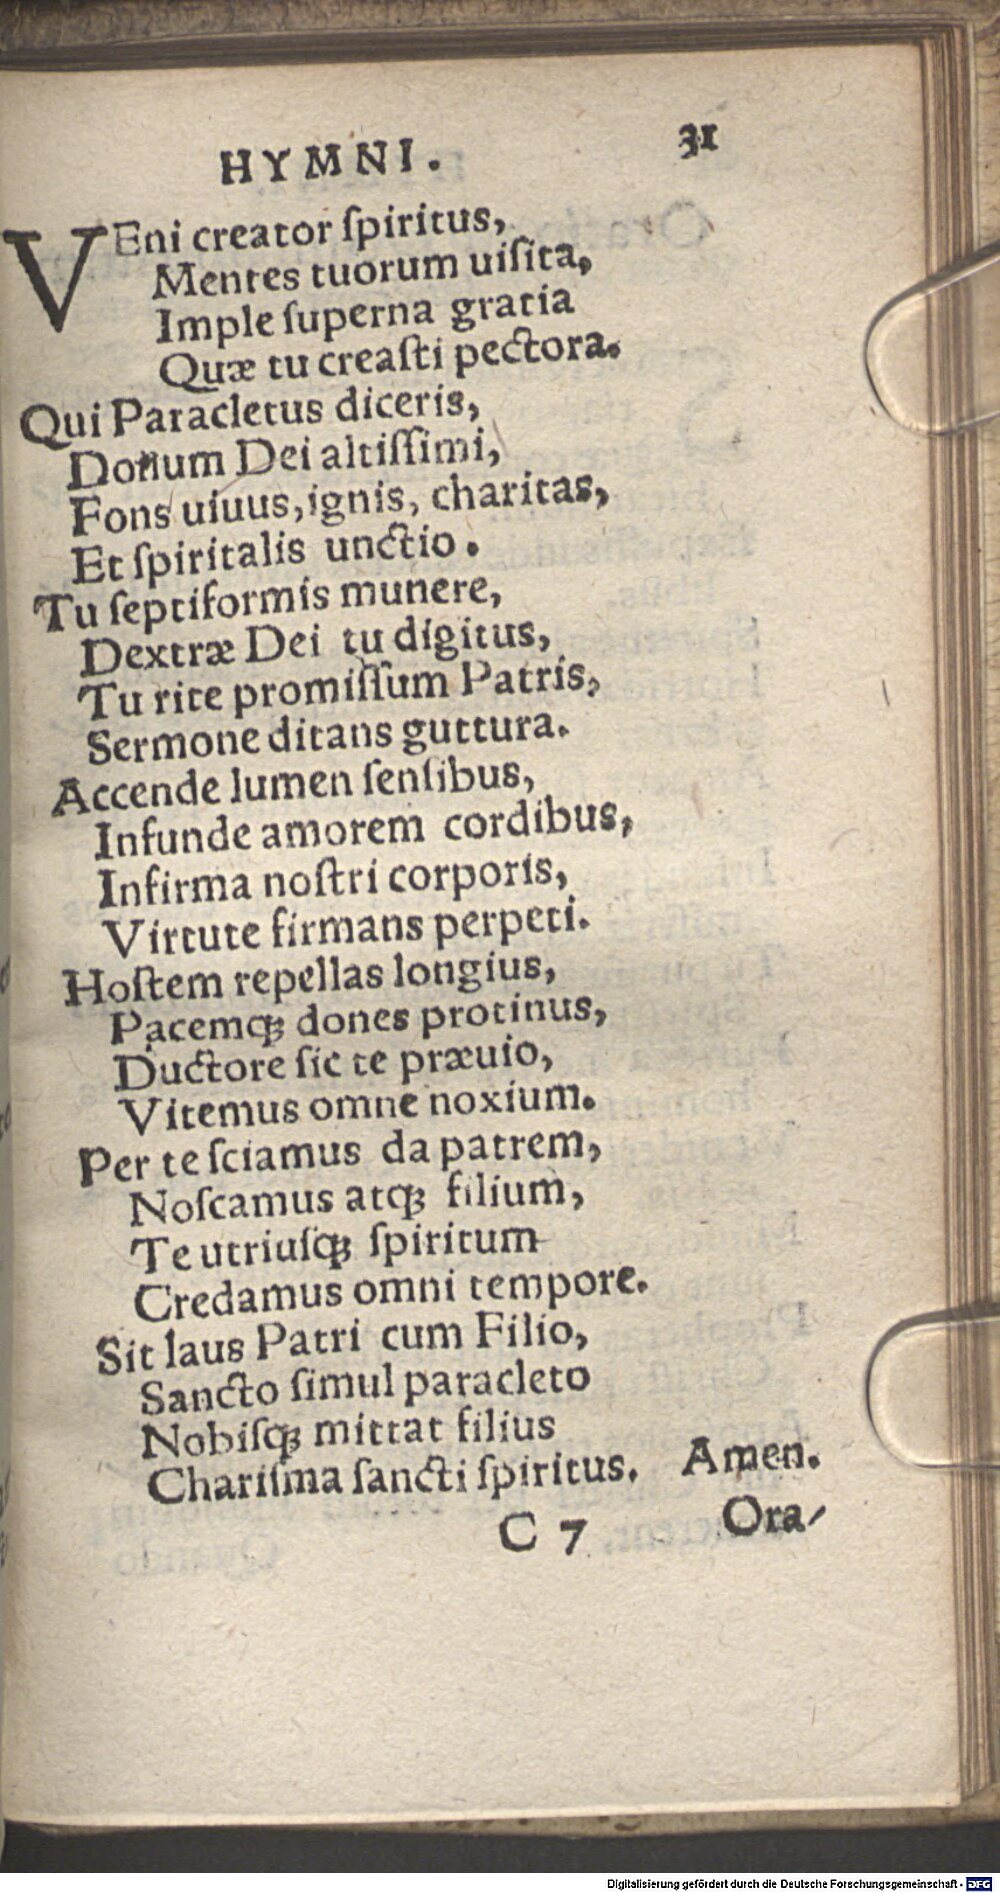 HYMNI. 31
VEni creator ſpiritus,
Mentes tuorum uiſita,
Imple ſuperna gratia
Quæ tu creaſti pectora.
Qui Paracletus diceris,
Donum Dei altiſſimi,
Fons uiuus, ignis, charitas,
Et ſpiritalis unctio.
Tu ſeptiformis munere,
Dextræ Dei tu digitus,
Tu rite promiſſum Patris,
Sermone ditans guttura.
Accende lumen ſenſibus,
Infunde amorem cordibus,
Infirma noſtri corporis,
Virtute firmans perpeti.
Hoſtem repellas longius,
Pacemq́ꝫ dones protinus,
Ductore ſic te præuio,
Vitemus omne noxium.
Per te ſciamus da patrem,
Noſcamus atqꝫ filium,
Te utriuſqꝫ ſpiritum
Credamus omni tempore.
Sit laus Patri cum Filio,
Sancto ſimul paracleto
Nobiſqꝫ mittat filius
Chariſma ſancti ſpiritus. Amen.
C 7 Ora-
Digitalisierung gefördert durch die Deutsche Forschungsgemeinschaft - DFG